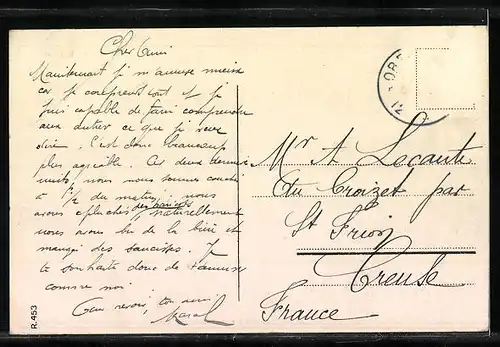 Cher Ami
Maintenant je m'amuse mieux
car je comprend tout et je
suis capable de faire comprendre
aux autres ce que je veux
dire. C'est donc beaucoup
plus agréable. Ces deux dernières
nuits, nous nous sommes couchés
à 1/2 du matin; nous
avons épluché des,
naturellement
nous avons bu de la bière et
mangé des saucisses. Je
te souhaite donc de t'amuser
comme moi.
Au revoir, ton ami
Marcel
Mr A Lecante
du Croizet par
St Frion
Creuse
France
R. 453
12